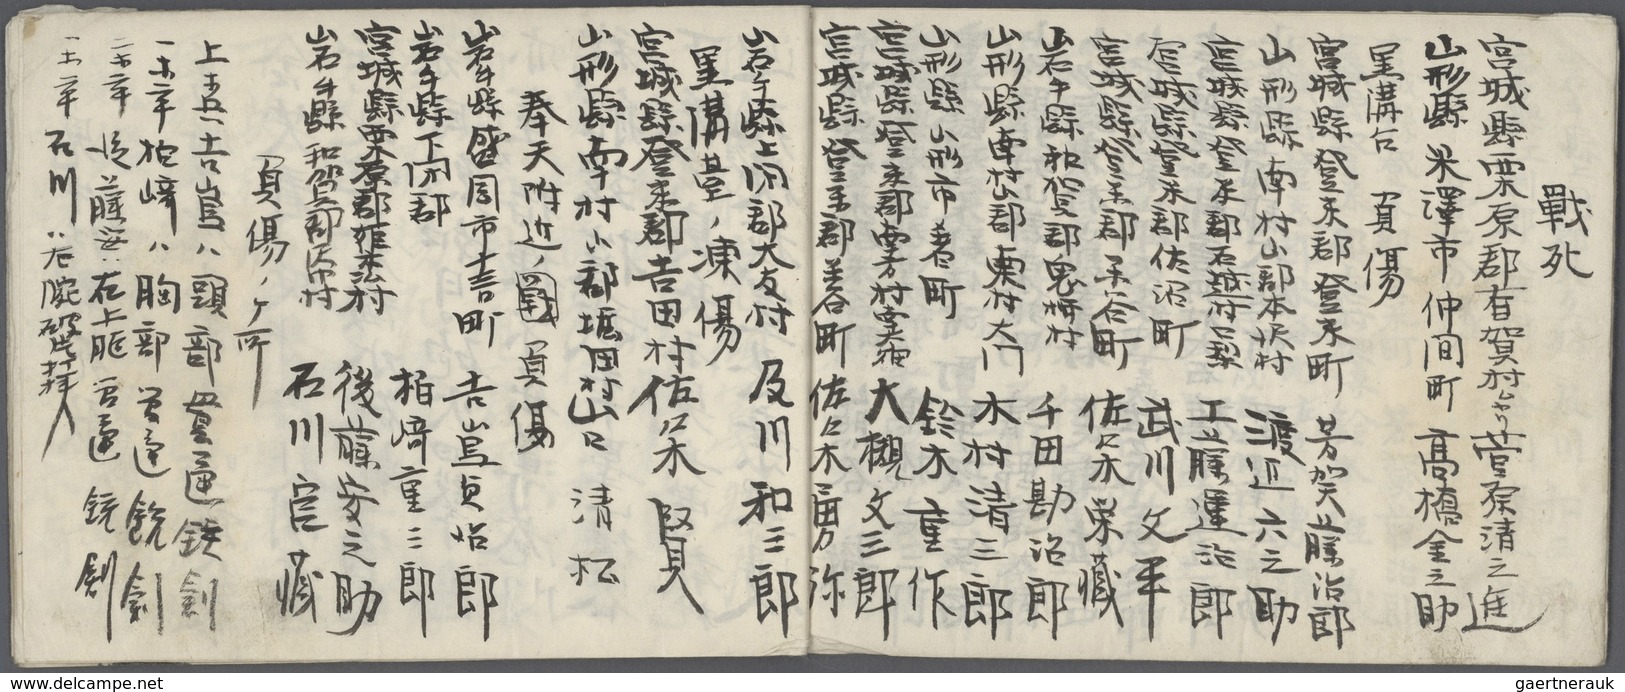 戰死
宮城縣栗原郡有賀村 菅原清之進
山形縣米澤市仲間町 高橋金之助
黒溝台 負傷
宮城縣登米郡登米町 芳賀藤治郎
山形縣南村山郡本沢村 渡辺六之助
宮城縣登米郡石越村 工藤運治郎
宮城縣登米郡佐沼町 武川文平
宮城縣登米郡米谷町 佐々木栄藏
岩手縣和賀郡鬼柳村 千田勘治郎
山形縣南村山郡東村大門 木村清三郎
山形縣山形市 町 鈴木重作
宮城縣登米郡宝江村 大槻文三郎
宮城縣登米郡米谷町 佐々木勇弥
岩手縣上閉郡大友村 及川和三郎
黒溝臺ノ凍傷
宮城縣登米郡吉田村 佐々木賢
山形縣南村山郡堀田村 山口清松
奉天附近ノ戰 負傷
岩手縣盛岡市吉町 吉島貞治郎
岩手縣下閉郡 柏﨑重三郎
宮城縣栗原郡姫松村 後藤安之助
岩手縣和賀郡 村 石川官藏
負傷ノヶ所
上吉島ハ頭部貫通銃創
一木卒柏﨑ハ胸部貫通銃創
二木卒後藤安ハ右上 貫通銃創
一木卒石川ハ右腕
www.delcampe.net
gaertnerauk